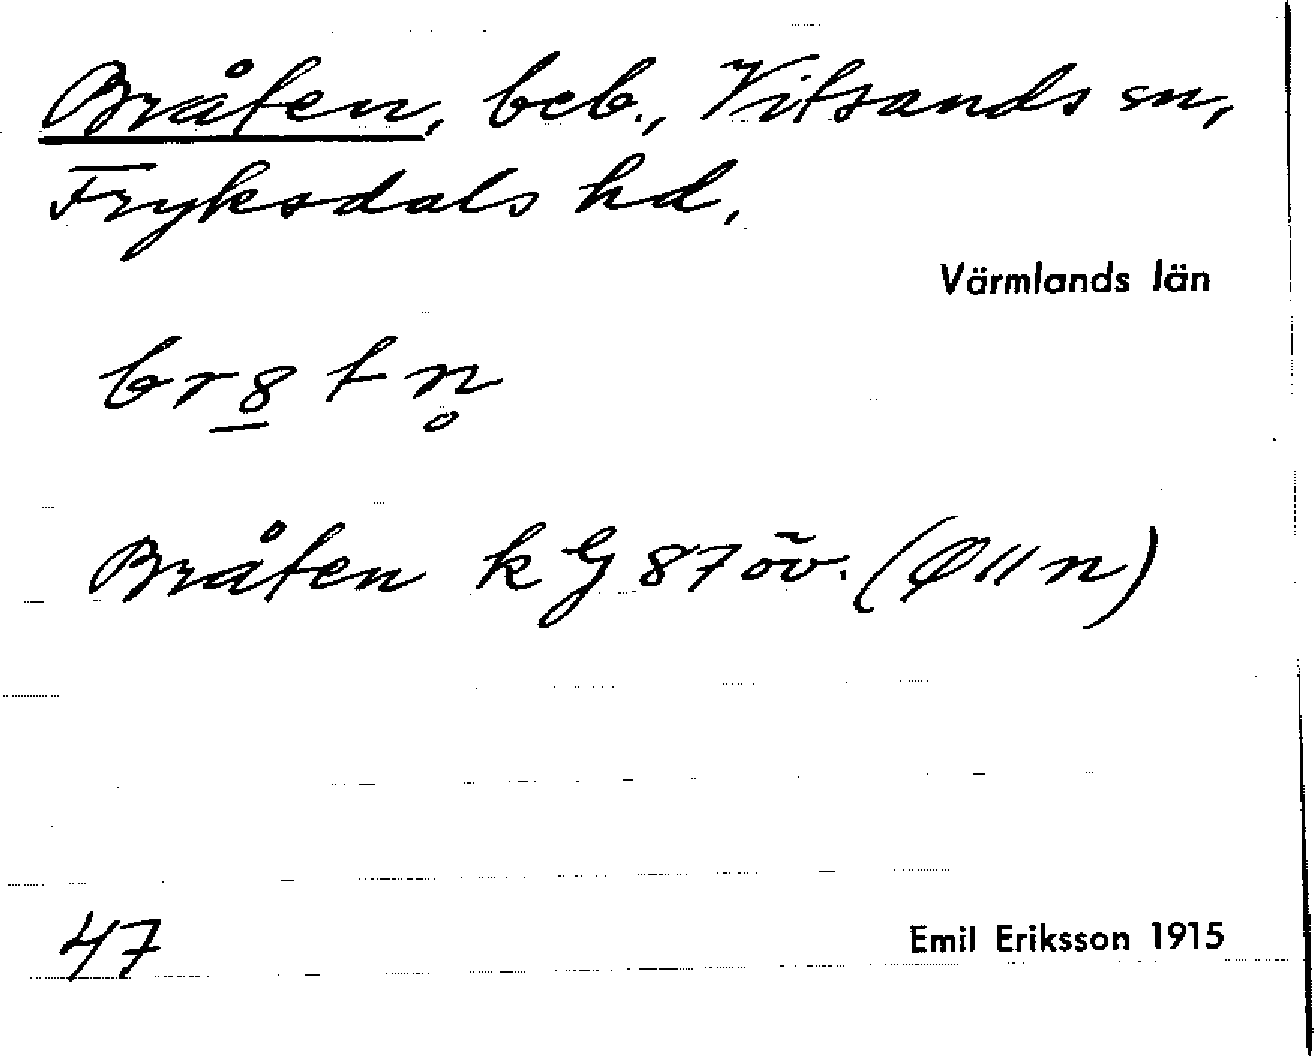 Bråten, beb., Vitsands sn,
Fryksdals hd.
Värmlands län
br8tn̥
Bråten k G 87 öv. (Ø II n)
47
Emil Eriksson 1915